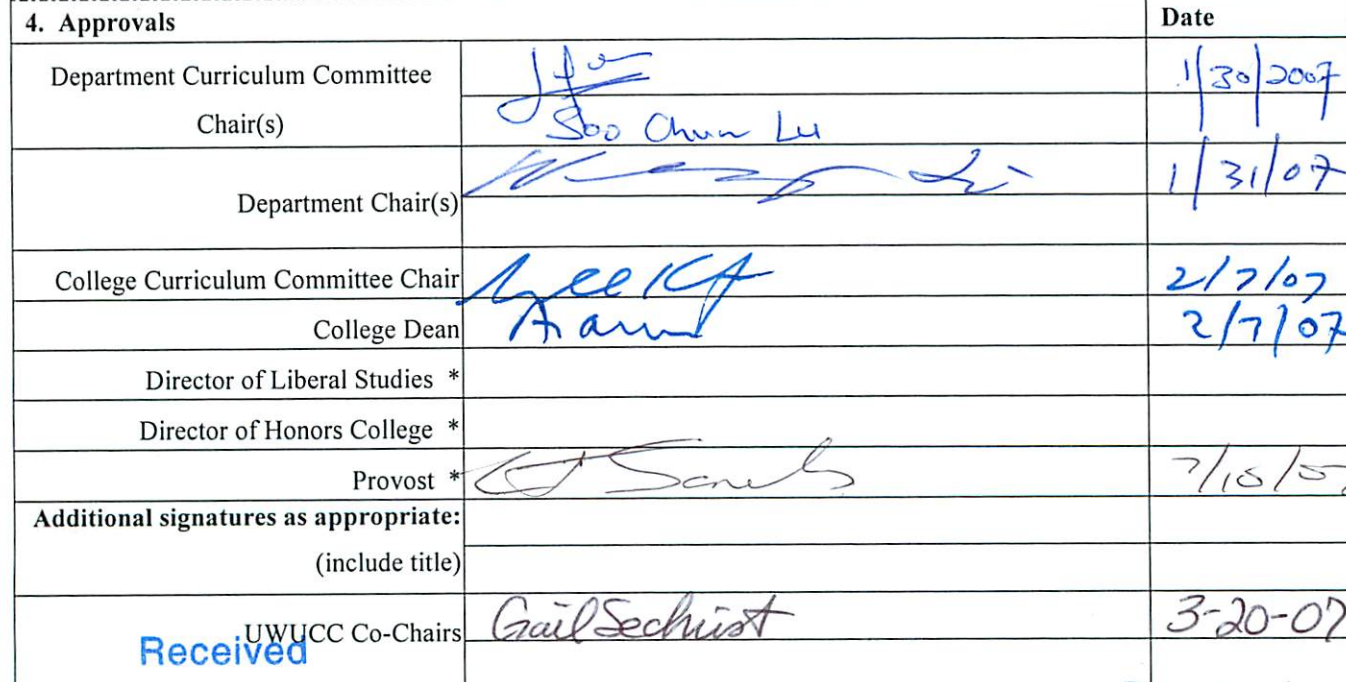 4. Approvals Date
Department Curriculum Committee 1/30/2007
Chair(s) Soo Chun Lu
Department Chair(s) 1/31/07
College Curriculum Committee Chair 2/7/07
College Dean 2/7/07
Director of Liberal Studies *
Director of Honors College *
Provost *
Additional signatures as appropriate:
(include title)
UWUCC Co-Chairs Gail Sechrist 3-20-07
Received